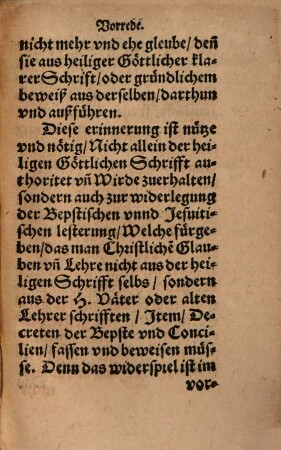 Vorrede.
nicht mehr vnd ehe gleube/ deñ
sie aus heiliger Göttlicher kla-
rer Schrifft/ oder gründlichem
beweiß aus derselben/ darthun
vnd außführen.
Diese erinnerung ist nütze
vnd nötig/ Nicht allein der hei-
ligen Göttlichen Schrifft au-
thoritet vñ Wirde zuerhalten/
sondern auch zur widerlegung
der Bepstischen vnnd Jesuiti-
schen lesterung/ Welche fürge-
ben/ das man Christlichẽ Glau-
ben vñ Lehre nicht aus der hei-
ligen Schrifft selbs/ sondern
aus der H. Väter oder alten
Lehrer schrifften/ Item/ De-
creten der Bepste vnd Conci-
lien/ fassen vnd beweisen müs-
se. Denn das widerspiel ist im
vor-